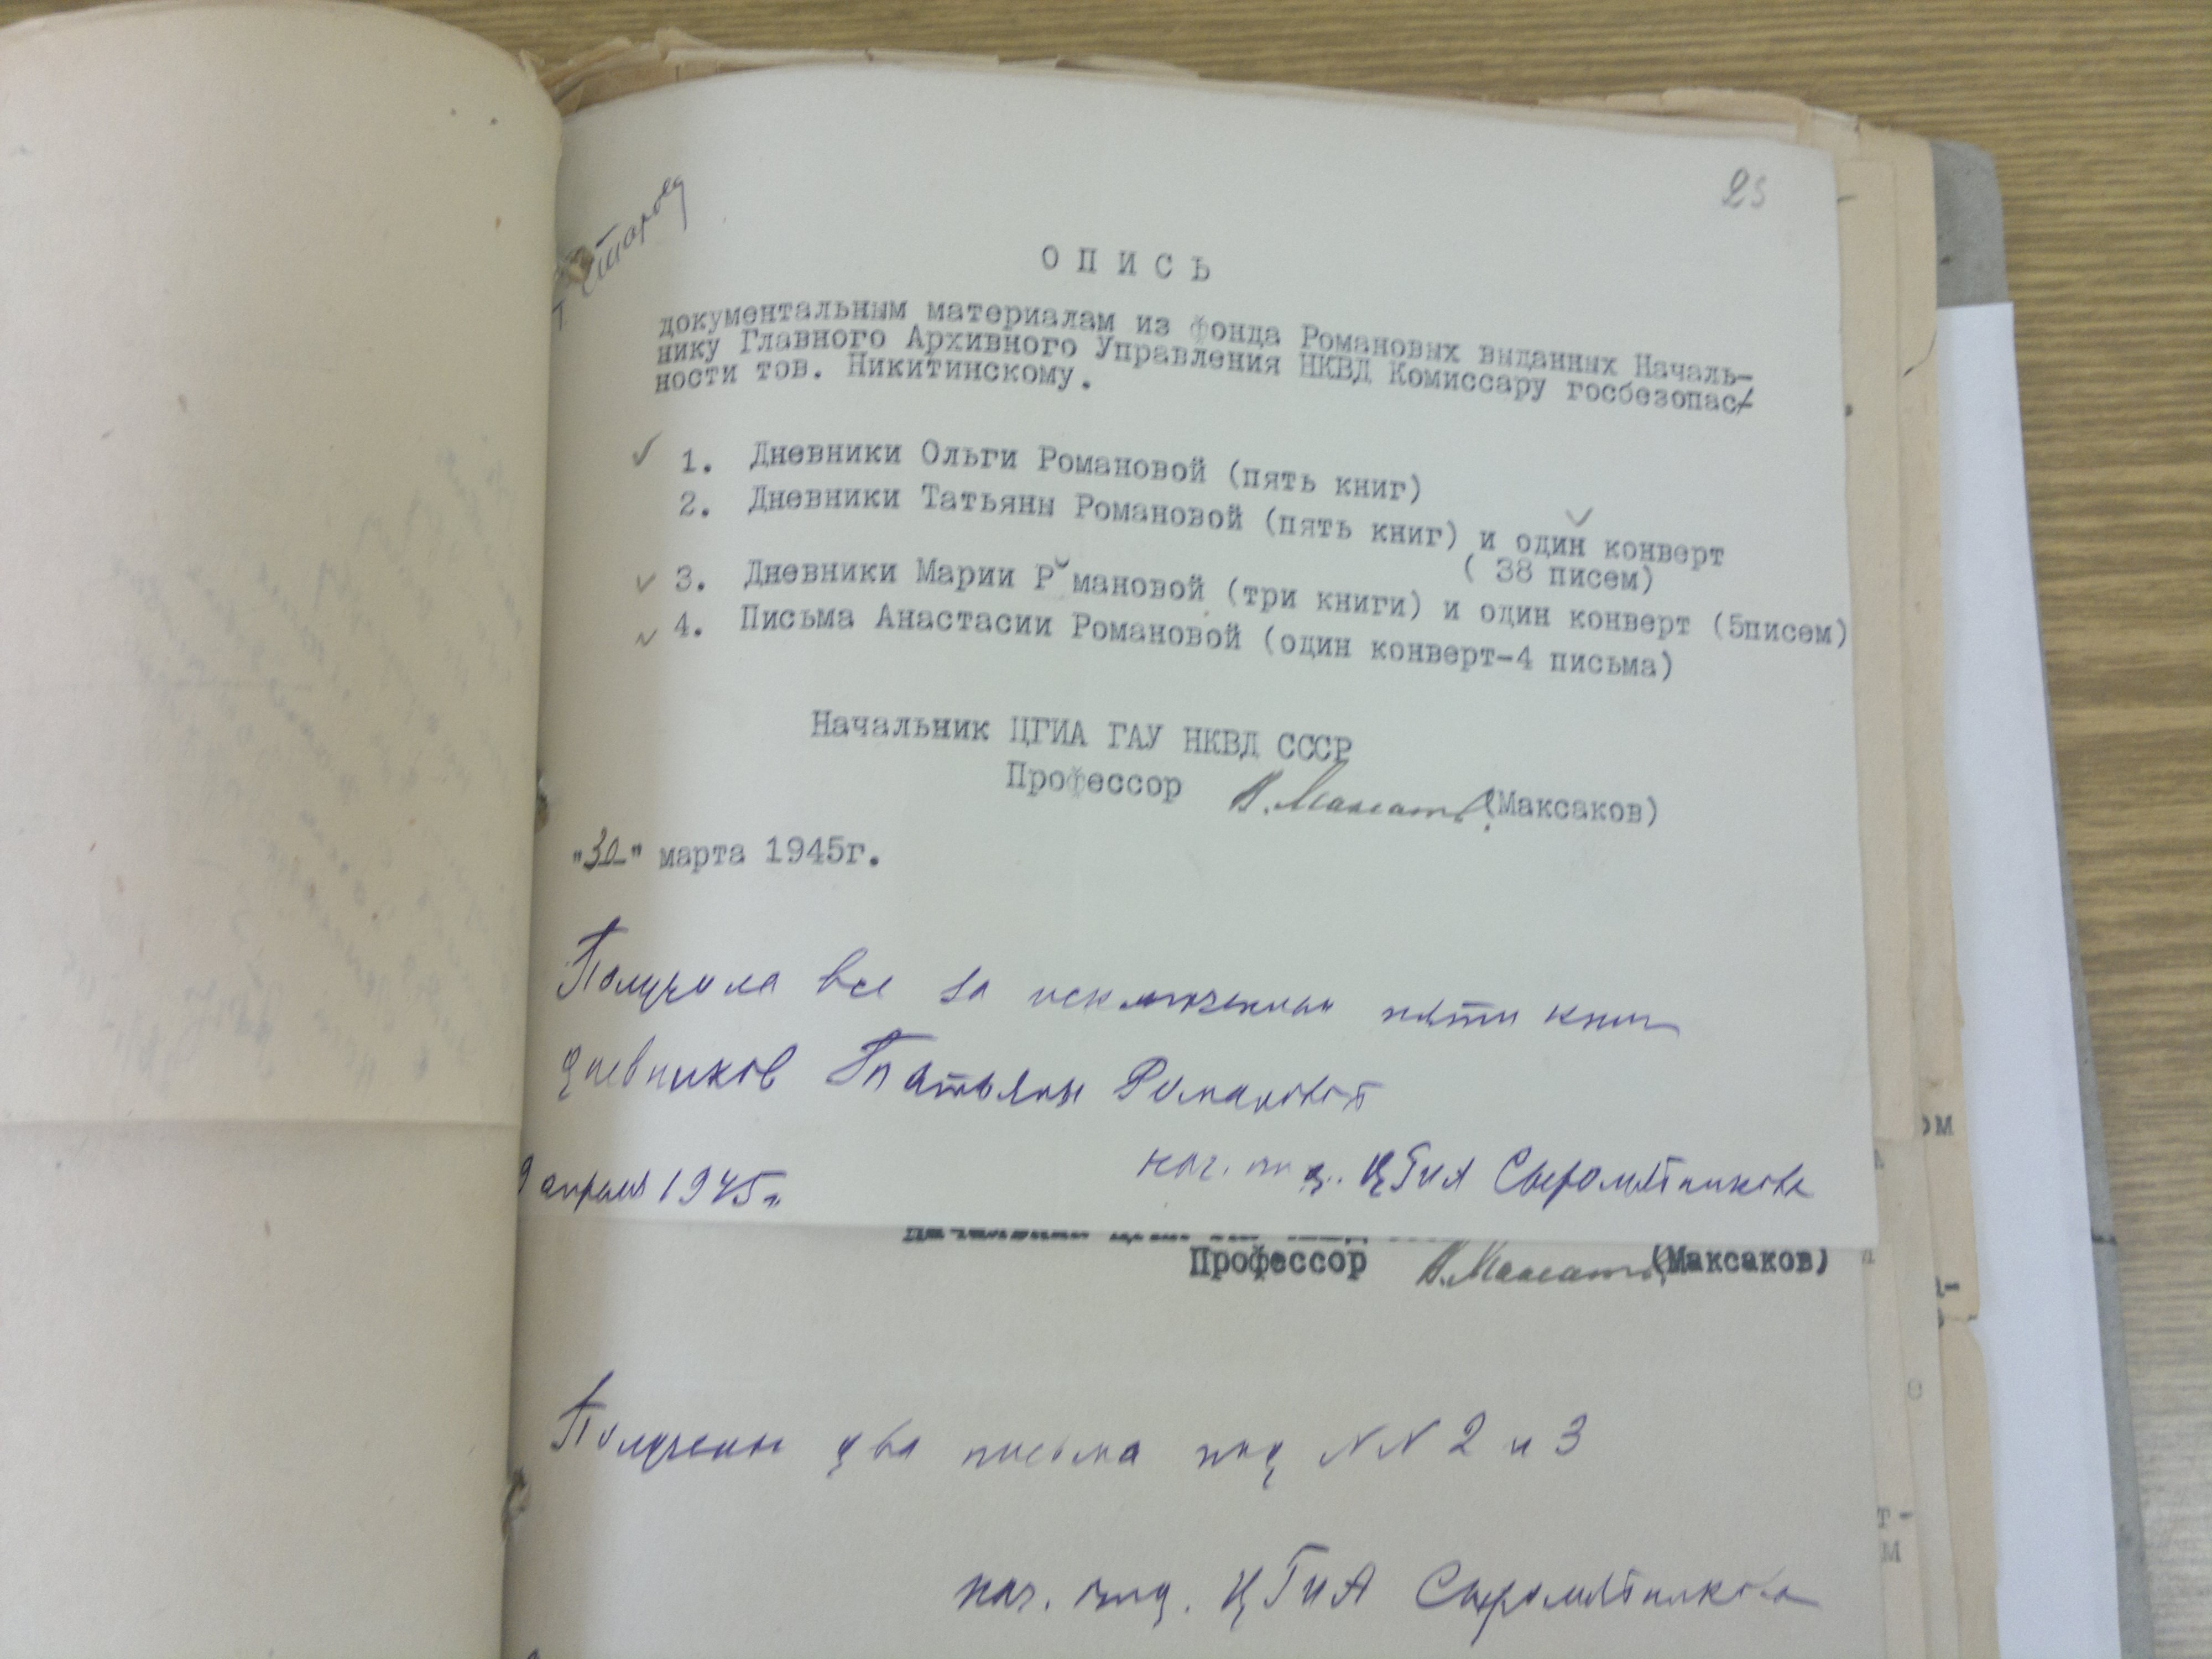 25
ОПИСЬ
документальным материалам из фонда Романовых выданных Началь-
нику Главного Архивного Управления НКВД Комиссару госбезопас-
ности тов. Никитинскому.
1. Дневники Ольги Романовой (пять книг)
2. Дневники Татьяны Романовой (пять книг) и один конверт
( 38 писем)
3. Дневники Марии Романовой (три книги) и один конверт (5писем)
4. Письма Анастасии Романовой (один конверт-4 письма)
Начальник ЦГИА ГАУ НКВД СССР
Профессор В. Максаков (Максаков)
"30" марта 1945г.
Получила все за исключением пяти книг
дневников Татьяны Романовой
нач. отд. ЦГИА Сыромятникова
9 апреля 1945г.
Профессор В. Максаков (Максаков)
Получены два письма под NN 2 и 3
нач. отд. ЦГИА Сыромятникова